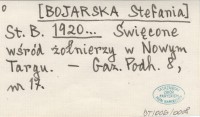 [BOJARSKA Stefania]
St. B. 1920... Święcone
wśród żołnierzy w Nowym
Targu. – Gaz. Podh. 8,
nr 17.